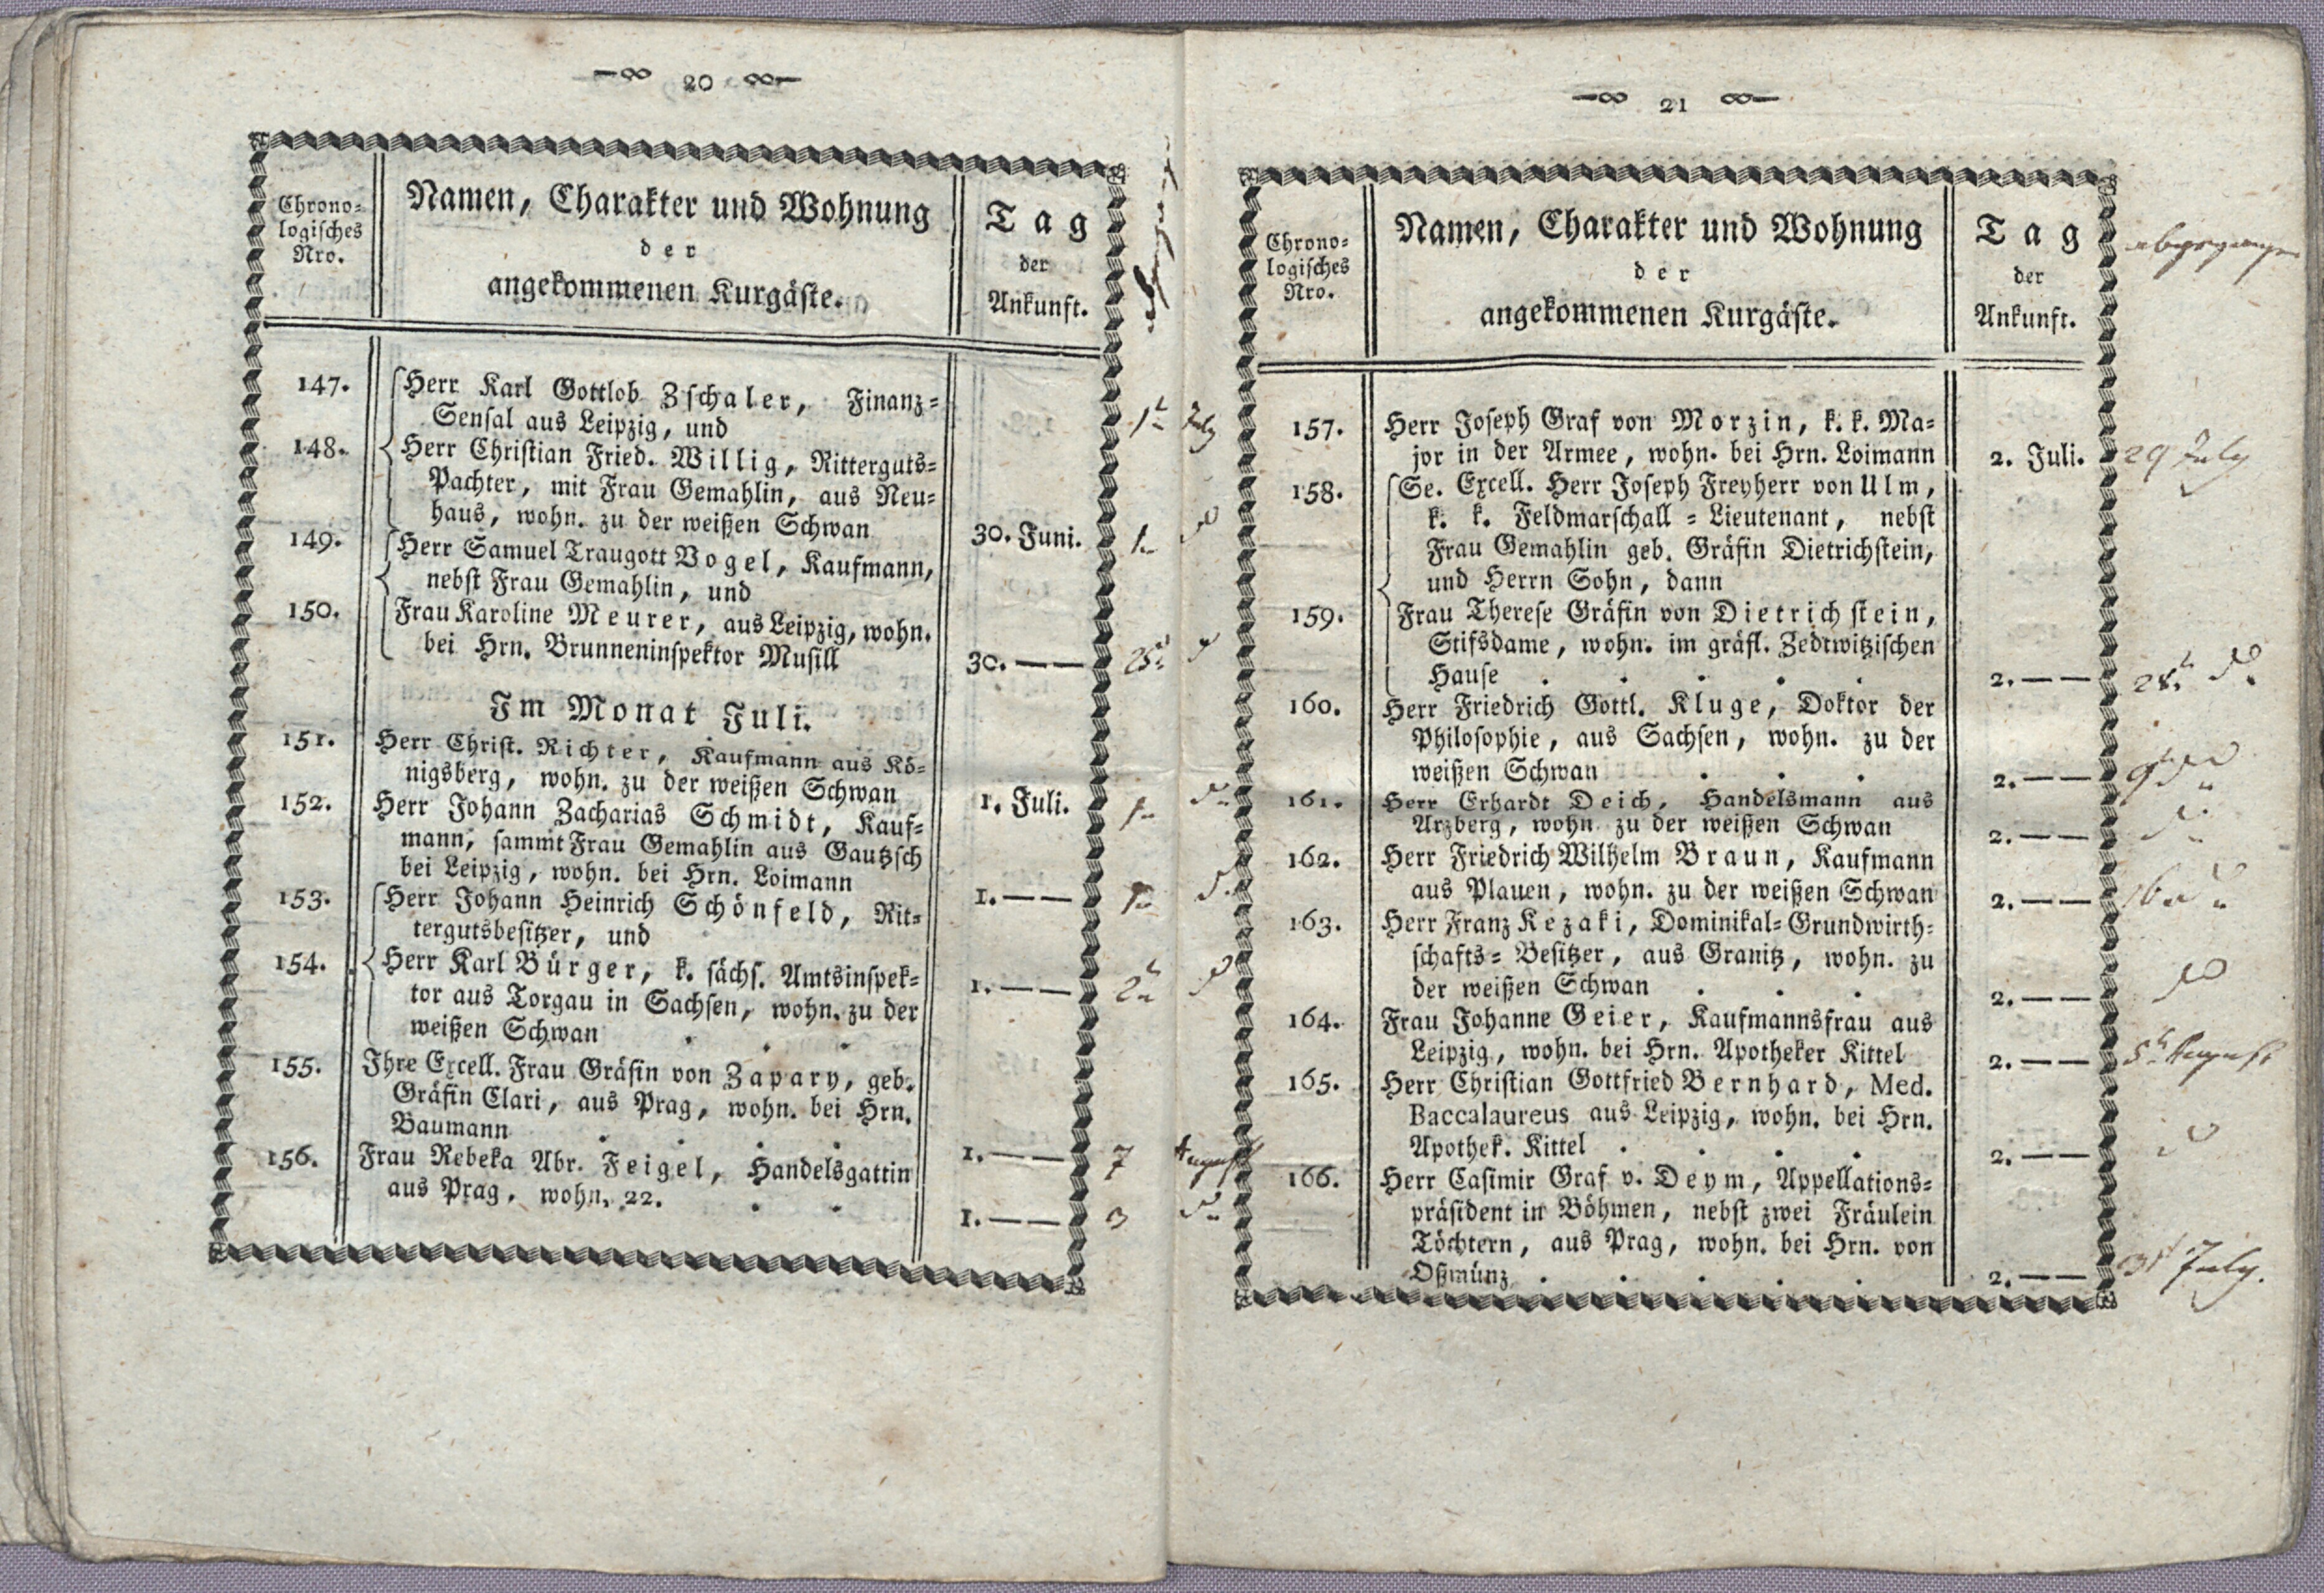 20
Chrono-
logisches
Nro.
Namen, Charakter und Wohnung
der
angekommenen Kurgäste.
Tag
der
Ankunft.
147. Herr Karl Gottlob Zschaler, Finanz-
Sensal aus Leipzig, und
148. Herr Christian Fried. Willig, Ritterguts-
Pachter, mit Frau Gemahlin, aus Neu-
haus, wohn. zu der weißen Schwan 30. Juni.
149. Herr Samuel Traugott Vogel, Kaufmann,
nebst Frau Gemahlin, und
150. Frau Karoline Meurer, aus Leipzig, wohn.
bei Hrn. Brunneninspektor Musill 30. — —
Im Monat Juli.
151. Herr Christ. Richter, Kaufmann aus Kö-
nigsberg, wohn. zu der weißen Schwan 1. Juli.
152. Herr Johann Zacharias Schmidt, Kauf-
mann, sammt Frau Gemahlin aus Gautzsch
bei Leipzig, wohn. bei Hrn. Loimann 1. — —
153. Herr Johann Heinrich Schönfeld, Rit-
tergutsbesitzer, und
154. Herr Karl Bürger, k. sächs. Amtsinspek-
tor aus Torgau in Sachsen, wohn. zu der 1. — —
weißen Schwan . . .
155. Ihre Excell. Frau Gräfin von Zapary, geb.
Gräfin Clari, aus Prag, wohn. bei Hrn.
Baumann . . . . 1. — — 7 August
156. Frau Rebeka Abr. Feigel, Handelsgattin
aus Prag, wohn. 22. . . 1. — — 3
21
Chrono-
logisches
Nro.
Namen, Charakter und Wohnung
der
angekommenen Kurgäste.
Tag
der
Ankunft.
abgegangen
157. Herr Joseph Graf von Morzin, k. k. Ma-
jor in der Armee, wohn. bei Hrn. Loimann 2. Juli. 29 July
158. Se. Excell. Herr Joseph Freyherr von Ulm,
k. k. Feldmarschall-Lieutenant, nebst
Frau Gemahlin geb. Gräfin Dietrichstein,
und Herrn Sohn, dann
159. Frau Therese Gräfin von Dietrichstein,
Stifsdame, wohn. im gräfl. Zedtwitzischen
Hause . . . . . 2. — —
160. Herr Friedrich Gottl. Kluge, Doktor der
Philosophie, aus Sachsen, wohn. zu der
weißen Schwan . . . 2. — —
161. Herr Erhardt Deich, Handelsmann aus
Arzberg, wohn. zu der weißen Schwan 2. — —
162. Herr Friedrich Wilhelm Braun, Kaufmann
aus Plauen, wohn. zu der weißen Schwan 2. — —
163. Herr Franz Kezaki, Dominikal-Grundwirth-
schafts-Besitzer, aus Granitz, wohn. zu
der weißen Schwan . . . 2. — —
164. Frau Johanne Geier, Kaufmannsfrau aus
Leipzig, wohn. bei Hrn. Apotheker Kittel 2. — — August
165. Herr Christian Gottfried Bernhard, Med.
Baccalaureus aus Leipzig, wohn. bei Hrn.
Apothek. Kittel . . . . 2. — —
166. Herr Casimir Graf v. Deym, Appellations-
präsident in Böhmen, nebst zwei Fräulein
Töchtern, aus Prag, wohn. bei Hrn. von
Oßmünz . . . . . 2. — — 31 July.